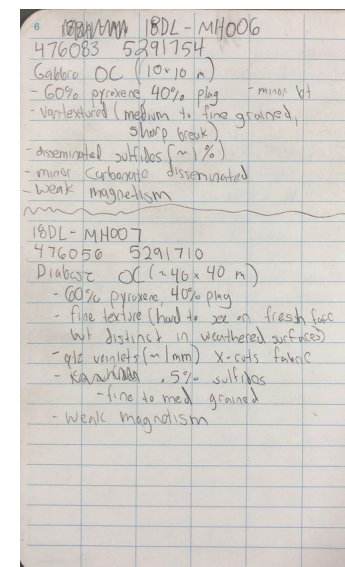 6 18DL-MH006
476083 5291754
Gabbro OC (10x10 m)
- 60% pyroxene 40% plag - minor bt
- Varitextured (medium to fine grained,
sharp break)
- disseminated sulfides (~1%)
- minor Carbonate disseminated
- weak magnetism
18DL-MH007
476056 5291710
Diabase OC (~40 x 40 m)
- 60% pyroxene, 40% plag
- fine texture (hard to see on fresh face
but distinct in weathered surfaces)
- qtz veinlets (~1mm) X-cuts fabric
- .5% sulfides
- fine to med grained
- weak magnetism